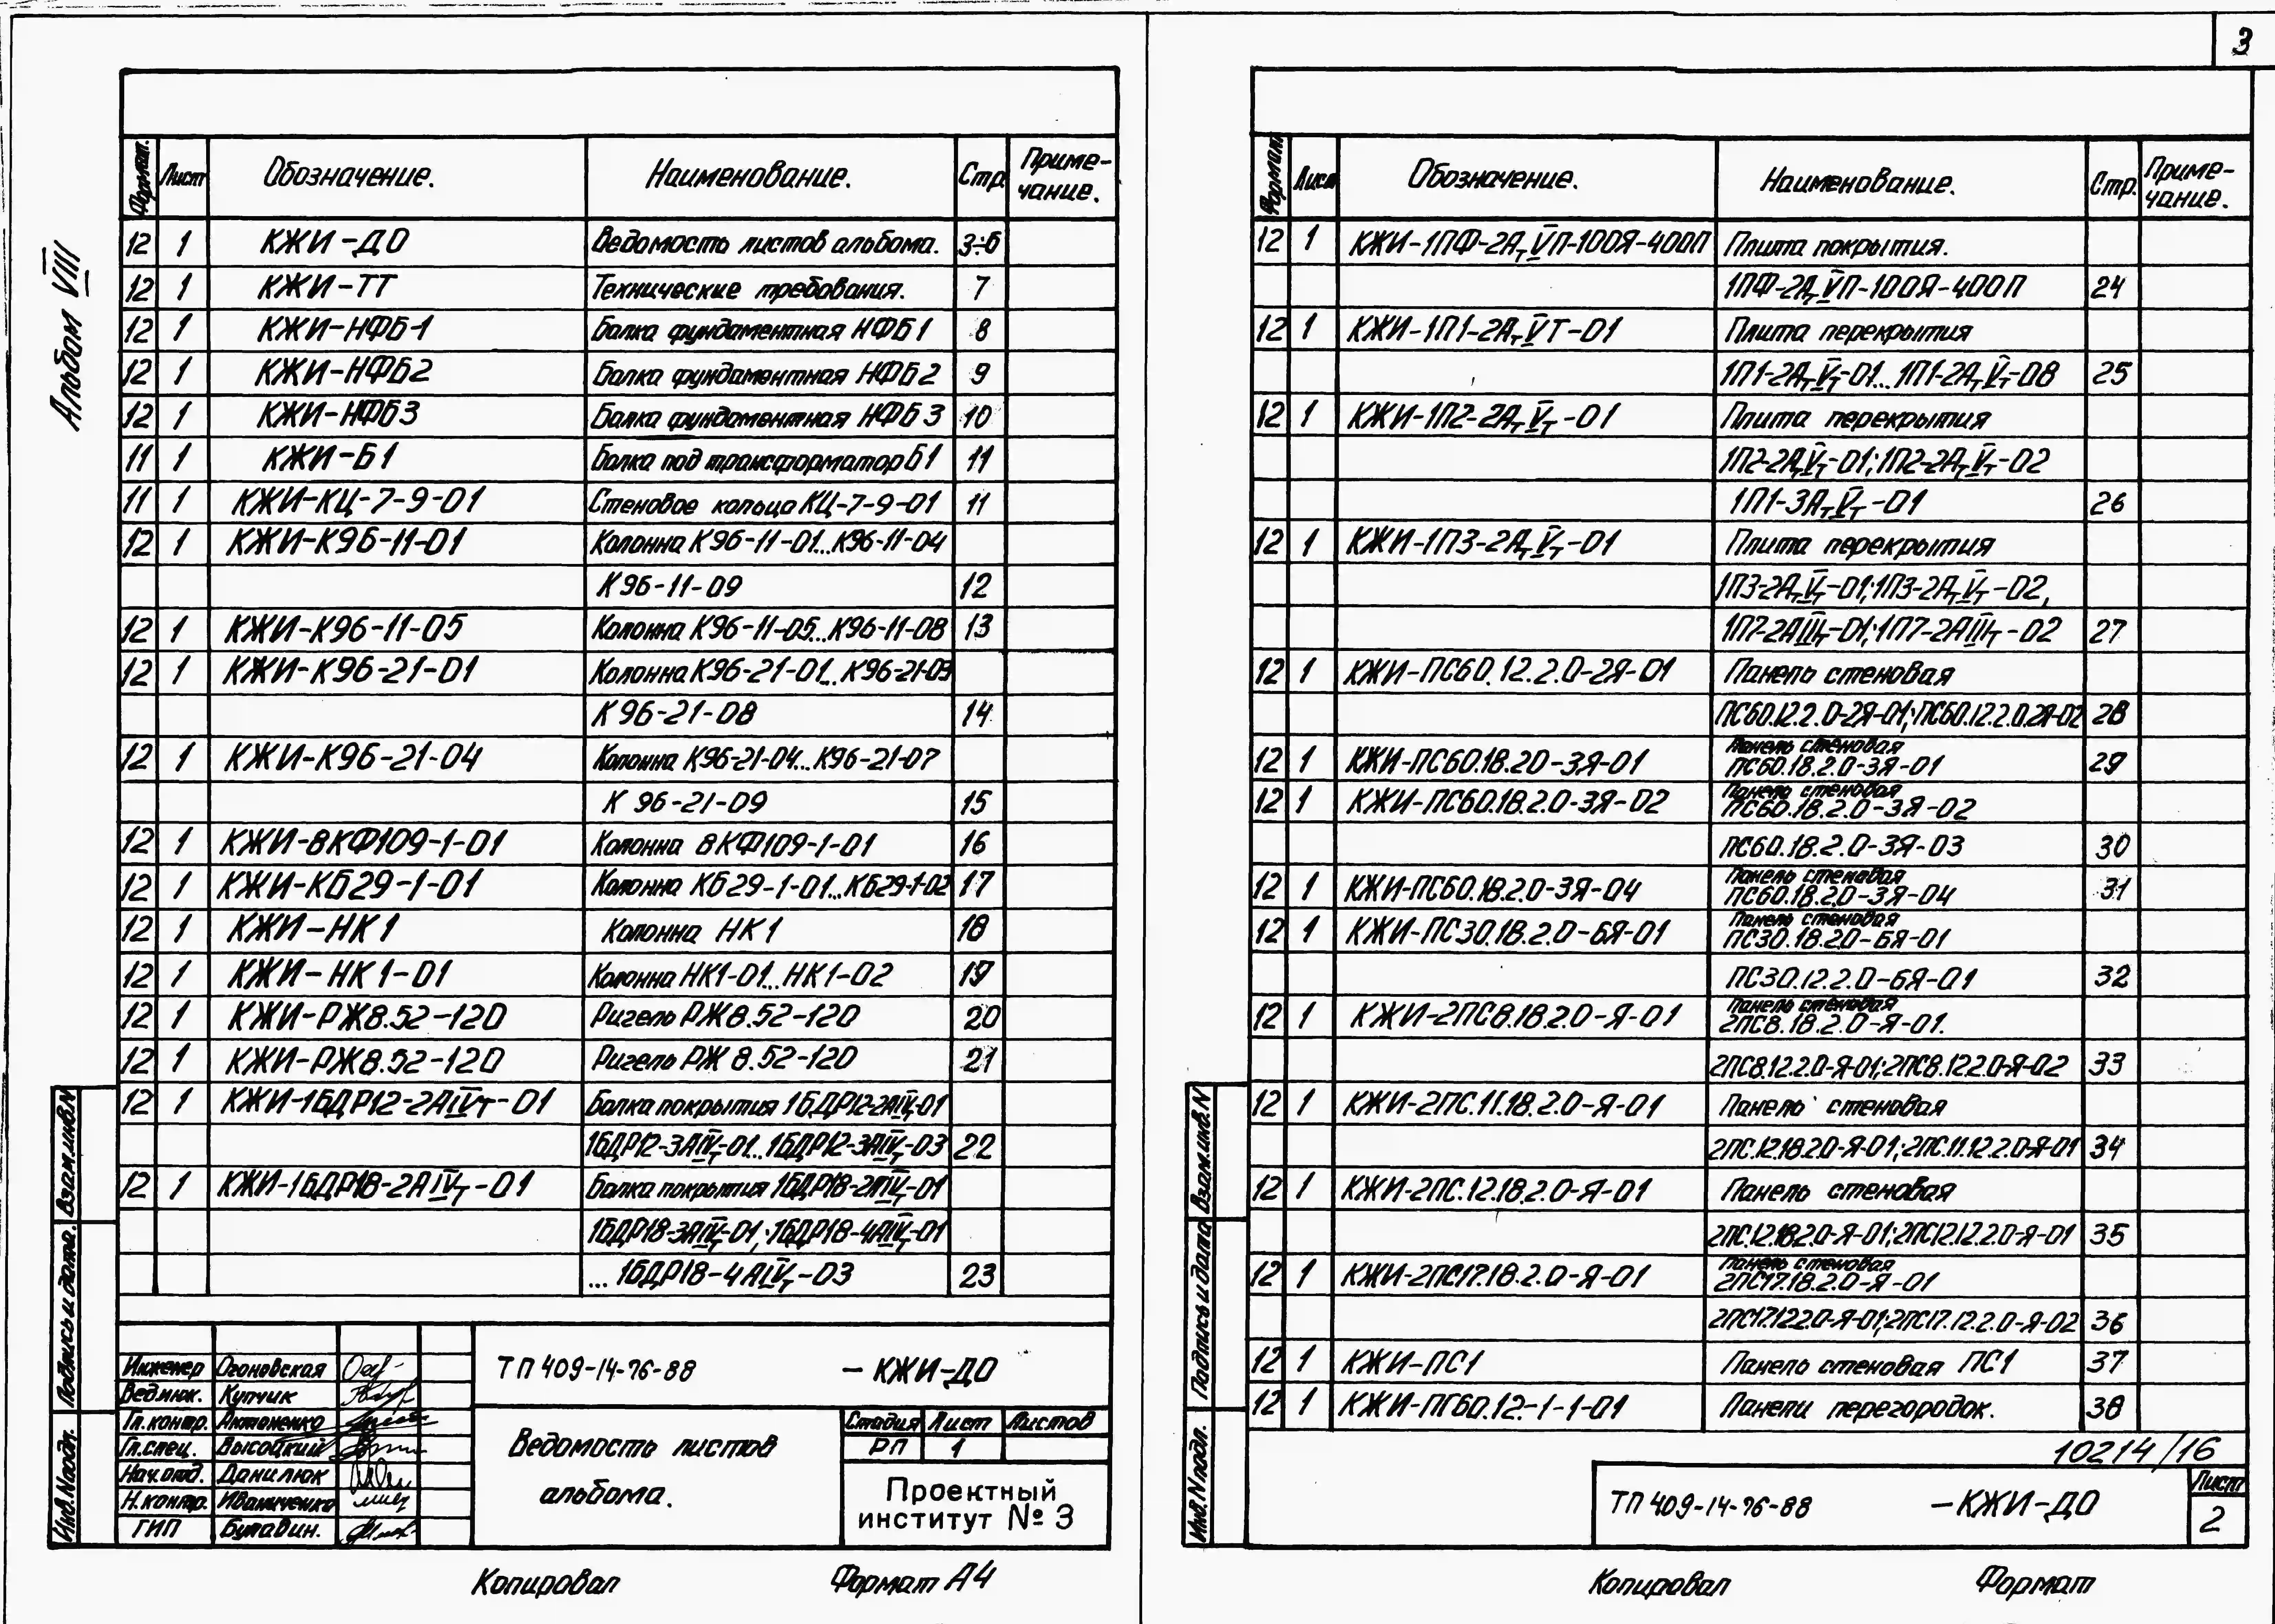 3
Альбом VIII
Формат. Лист Обозначение. Наименование. Стр. Приме-
чание.
12 1 КЖИ-ДО Ведомость листов альбома. 3÷6
12 1 КЖИ-ТТ Технические требования. 7
12 1 КЖИ-НФБ-1 Балка фундаментная НФБ1 8
12 1 КЖИ-НФБ2 Балка фундаментная НФБ2 9
12 1 КЖИ-НФБ3 Балка фундаментная НФБ3 10
11 1 КЖИ-Б1 Балка под трансформатор Б1 11
11 1 КЖИ-КЦ-7-9-01 Стеновое кольцо КЦ-7-9-01 11
12 1 КЖИ-К96-11-01 Колонна К96-11-01...К96-11-04
К96-11-09 12
12 1 КЖИ-К96-11-05 Колонна К96-11-05...К96-11-08 13
12 1 КЖИ-К96-21-01 Колонна К96-21-01...К96-21-03
К96-21-08 14
12 1 КЖИ-К96-21-04 Колонна К96-21-04...К96-21-07
К 96-21-09 15
12 1 КЖИ-8КФ109-1-01 Колонна 8КФ109-1-01 16
12 1 КЖИ-КБ29-1-01 Колонна КБ29-1-01...КБ29-1-02 17
12 1 КЖИ-НК1 Колонна НК1 18
12 1 КЖИ-НК1-01 Колонна НК1-01...НК1-02 19
12 1 КЖИ-РЖ8.52-120 Ригель РЖ8.52-120 20
12 1 КЖИ-РЖ8.52-120 Ригель РЖ 8.52-120 21
12 1 КЖИ-1БДР12-2АIVт-01 Балка покрытия 1БДР12-2АIVт-01
1БДР12-3АIVт-01...1БДР12-3АIVт-03 22
12 1 КЖИ-1БДР18-2АIVт-01 Балка покрытия 1БДР18-2АIVт-01
1БДР18-3АIVт-01,;1БДР18-4АIVт-01
...1БДР18-4АIVт-03 23
Инженер Огоновская
Вед.инж. Купчик
Гл.контр. Антоненко
Гл.спец. Высоцкий
Нач.отд. Данилюк
Н.контр. Иваниченко
ГИП Булавин.
ТП 409-14-76-88 -КЖИ-ДО
Ведомость листов
альбома.
Стадия Лист Листов
РП 1
Проектный
институт № 3
Взам.инв.N
Подпись и дата.
Инв.Nподл.
Копировал Формат А4
Формат. Лист Обозначение. Наименование. Стр. Приме-
чание.
12 1 КЖИ-1ПФ-2АтVП-100Я-400П Плита покрытия.
1ПФ-2АтVП-100Я-400П 24
12 1 КЖИ-1П1-2АтVТ-01 Плита перекрытия
1П1-2АтVт-01...1П1-2АтVт-08 25
12 1 КЖИ-1П2-2АтVт-01 Плита перекрытия
1П2-2АтVт-01;1П2-2АтVт-02
1П1-3АтVт-01 26
12 1 КЖИ-1П3-2АтVт-01 Плита перекрытия
1П3-2АтVт-01;1П3-2АтVт-02,
1П7-2АIIIт-01;1П7-2АIIIт-02 27
12 1 КЖИ-ПС60.12.2.0-2Я-01 Панель стеновая
ПС60.12.2.0-2Я-01;ПС60.12.2.0.2Я-02 28
12 1 КЖИ-ПС60.18.20-3Я-01 Панель стеновая
ПС60.18.2.0-3Я-01 29
12 1 КЖИ-ПС60.18.2.0-3Я-02 Панель стеновая
ПС60.18.2.0-3Я-02
ПС60.18.2.0-3Я-03 30
12 1 КЖИ-ПС60.18.2.0-3Я-04 Панель стеновая
ПС60.18.2.0-3Я-04 31
12 1 КЖИ-ПС30.18.2.0-БЯ-01 Панель стеновая
ПС30.18.20-БЯ-01
ПС30.12.2.0-6Я-01 32
12 1 КЖИ-2ПС8.18.2.0-Я-01 Панель стеновая
2ПС8.18.2.0-Я-01.
2ПС8.12.2.0-Я-01;2ПС8.12.2.0-Я-02 33
12 1 КЖИ-2ПС.11.18.2.0-Я-01 Панель стеновая
2ПС.12.18.20-Я-01;2ПС.11.12.2.0-Я-01 34
12 1 КЖИ-2ПС.12.18.2.0-Я-01 Панель стеновая
2ПС.12.18.2.0-Я-01;2ПС12.12.2.0-Я-01 35
12 1 КЖИ-2ПС17.18.2.0-Я-01 Панель стеновая
2ПС17.18.2.0-Я-01
2ПС17.12.2.0-Я-01;2ПС17.12.2.0-Я-02 36
12 1 КЖИ-ПС1 Панель стеновая ПС1 37
12 1 КЖИ-ПГ60.12-1-1-01 Панели перегородок. 38
10214/16
ТП 409-14-76-88 -КЖИ-ДО
Лист
2
Взам.инв.N
Подпись и дата
Инв.Nподл.
Копировал Формат